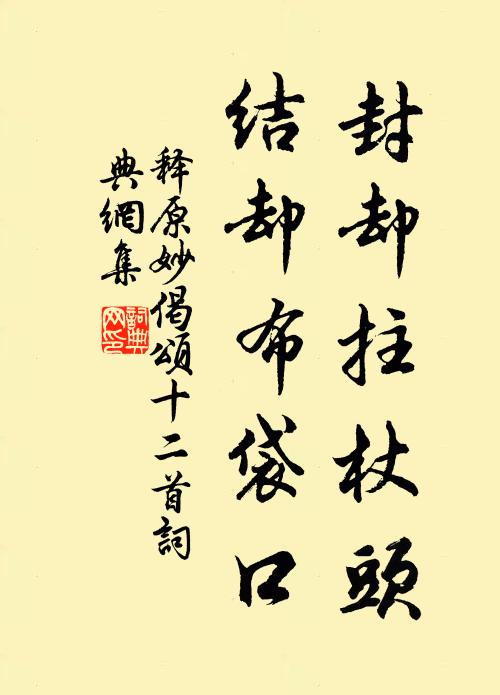 封却拄杖頭
结却布袋口
释原妙偈頌十二首詞
典網集
詞典
网印